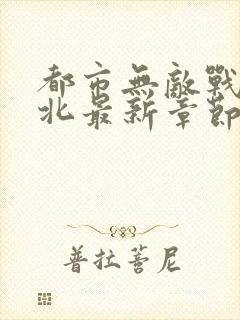 都市無敵戰
北最新章節
普拉蓍尼